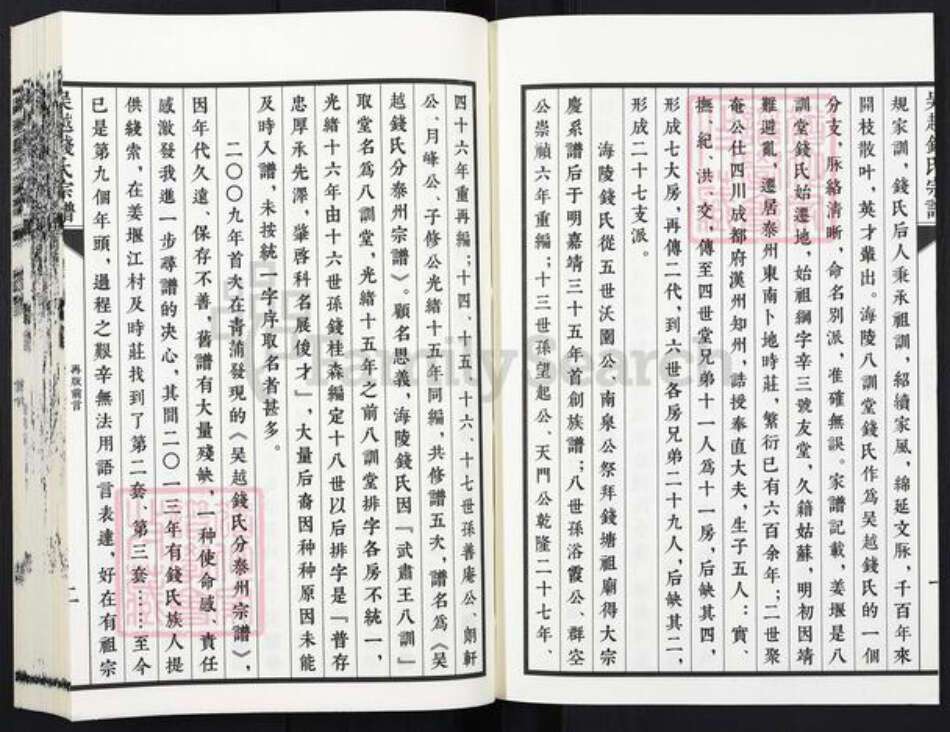 規家訓，錢氏后人秉承祖訓，紹續家風，綿延文脉，千百年來
開枝散叶，英才輩出。海陵八訓堂錢氏作爲吴越錢氏的一個
分支，脉絡清晰，命名别派，准確無誤。家譜記載，姜堰是八
訓堂錢氏始遷地，始祖綱字辛三號友堂，久籍姑蘇，明初因靖
難避亂，遷居泰州東南卜地時莊，繁衍已有六百余年；二世聚
奄公仕四川成都府漢州知州，誥授奉直大夫，生子五人：實、
撫、紀、洪、交，傳至四世堂兄弟十一人爲十一房，后缺其四，
形成七大房，再傳二代，到六世各房兄弟二十九人，后缺其二，
形成二十七支派。
海陵錢氏從五世沃園公、南泉公祭拜錢塘祖廟得大宗
慶系譜后于明嘉靖三十五年首創族譜；八世孫浴霞公、群空
公崇禎六年重編；十三世孫望起公、天門公乾隆二十七年、
吴越錢氏宗譜
一
四十六年重再編；十四、十五、十六、十七世孫善庵公、朗軒
公、月峰公、子修公光緒十五年同編，共修譜五次，譜名爲《吴
越錢氏分泰州宗譜》。顧名思義，海陵錢氏因『武肅王八訓』
取堂名爲八訓堂，光緒十五年之前八訓堂排字各房不統一，
光緒十六年由十六世孫錢桂森編定十八世以后排字是『普存
忠厚承先澤，肇啓科名展俊才』，大量后裔因種種原因未能
及時入譜，未按統一字序取名者甚多。
二〇〇九年首次在青浦發現的《吴越錢氏分泰州宗譜》，
因年代久遠、保存不善，舊譜有大量殘缺，一种使命感、責任
感激發我進一步尋譜的决心，其間二〇一三年有錢氏族人提
供綫索，在姜堰江村及時莊找到了第二套、第三套……至今
已是第九個年頭，過程之艱辛無法用語言表達，好在有祖宗
吴越錢氏宗譜
再版前言
二
FamilySearch